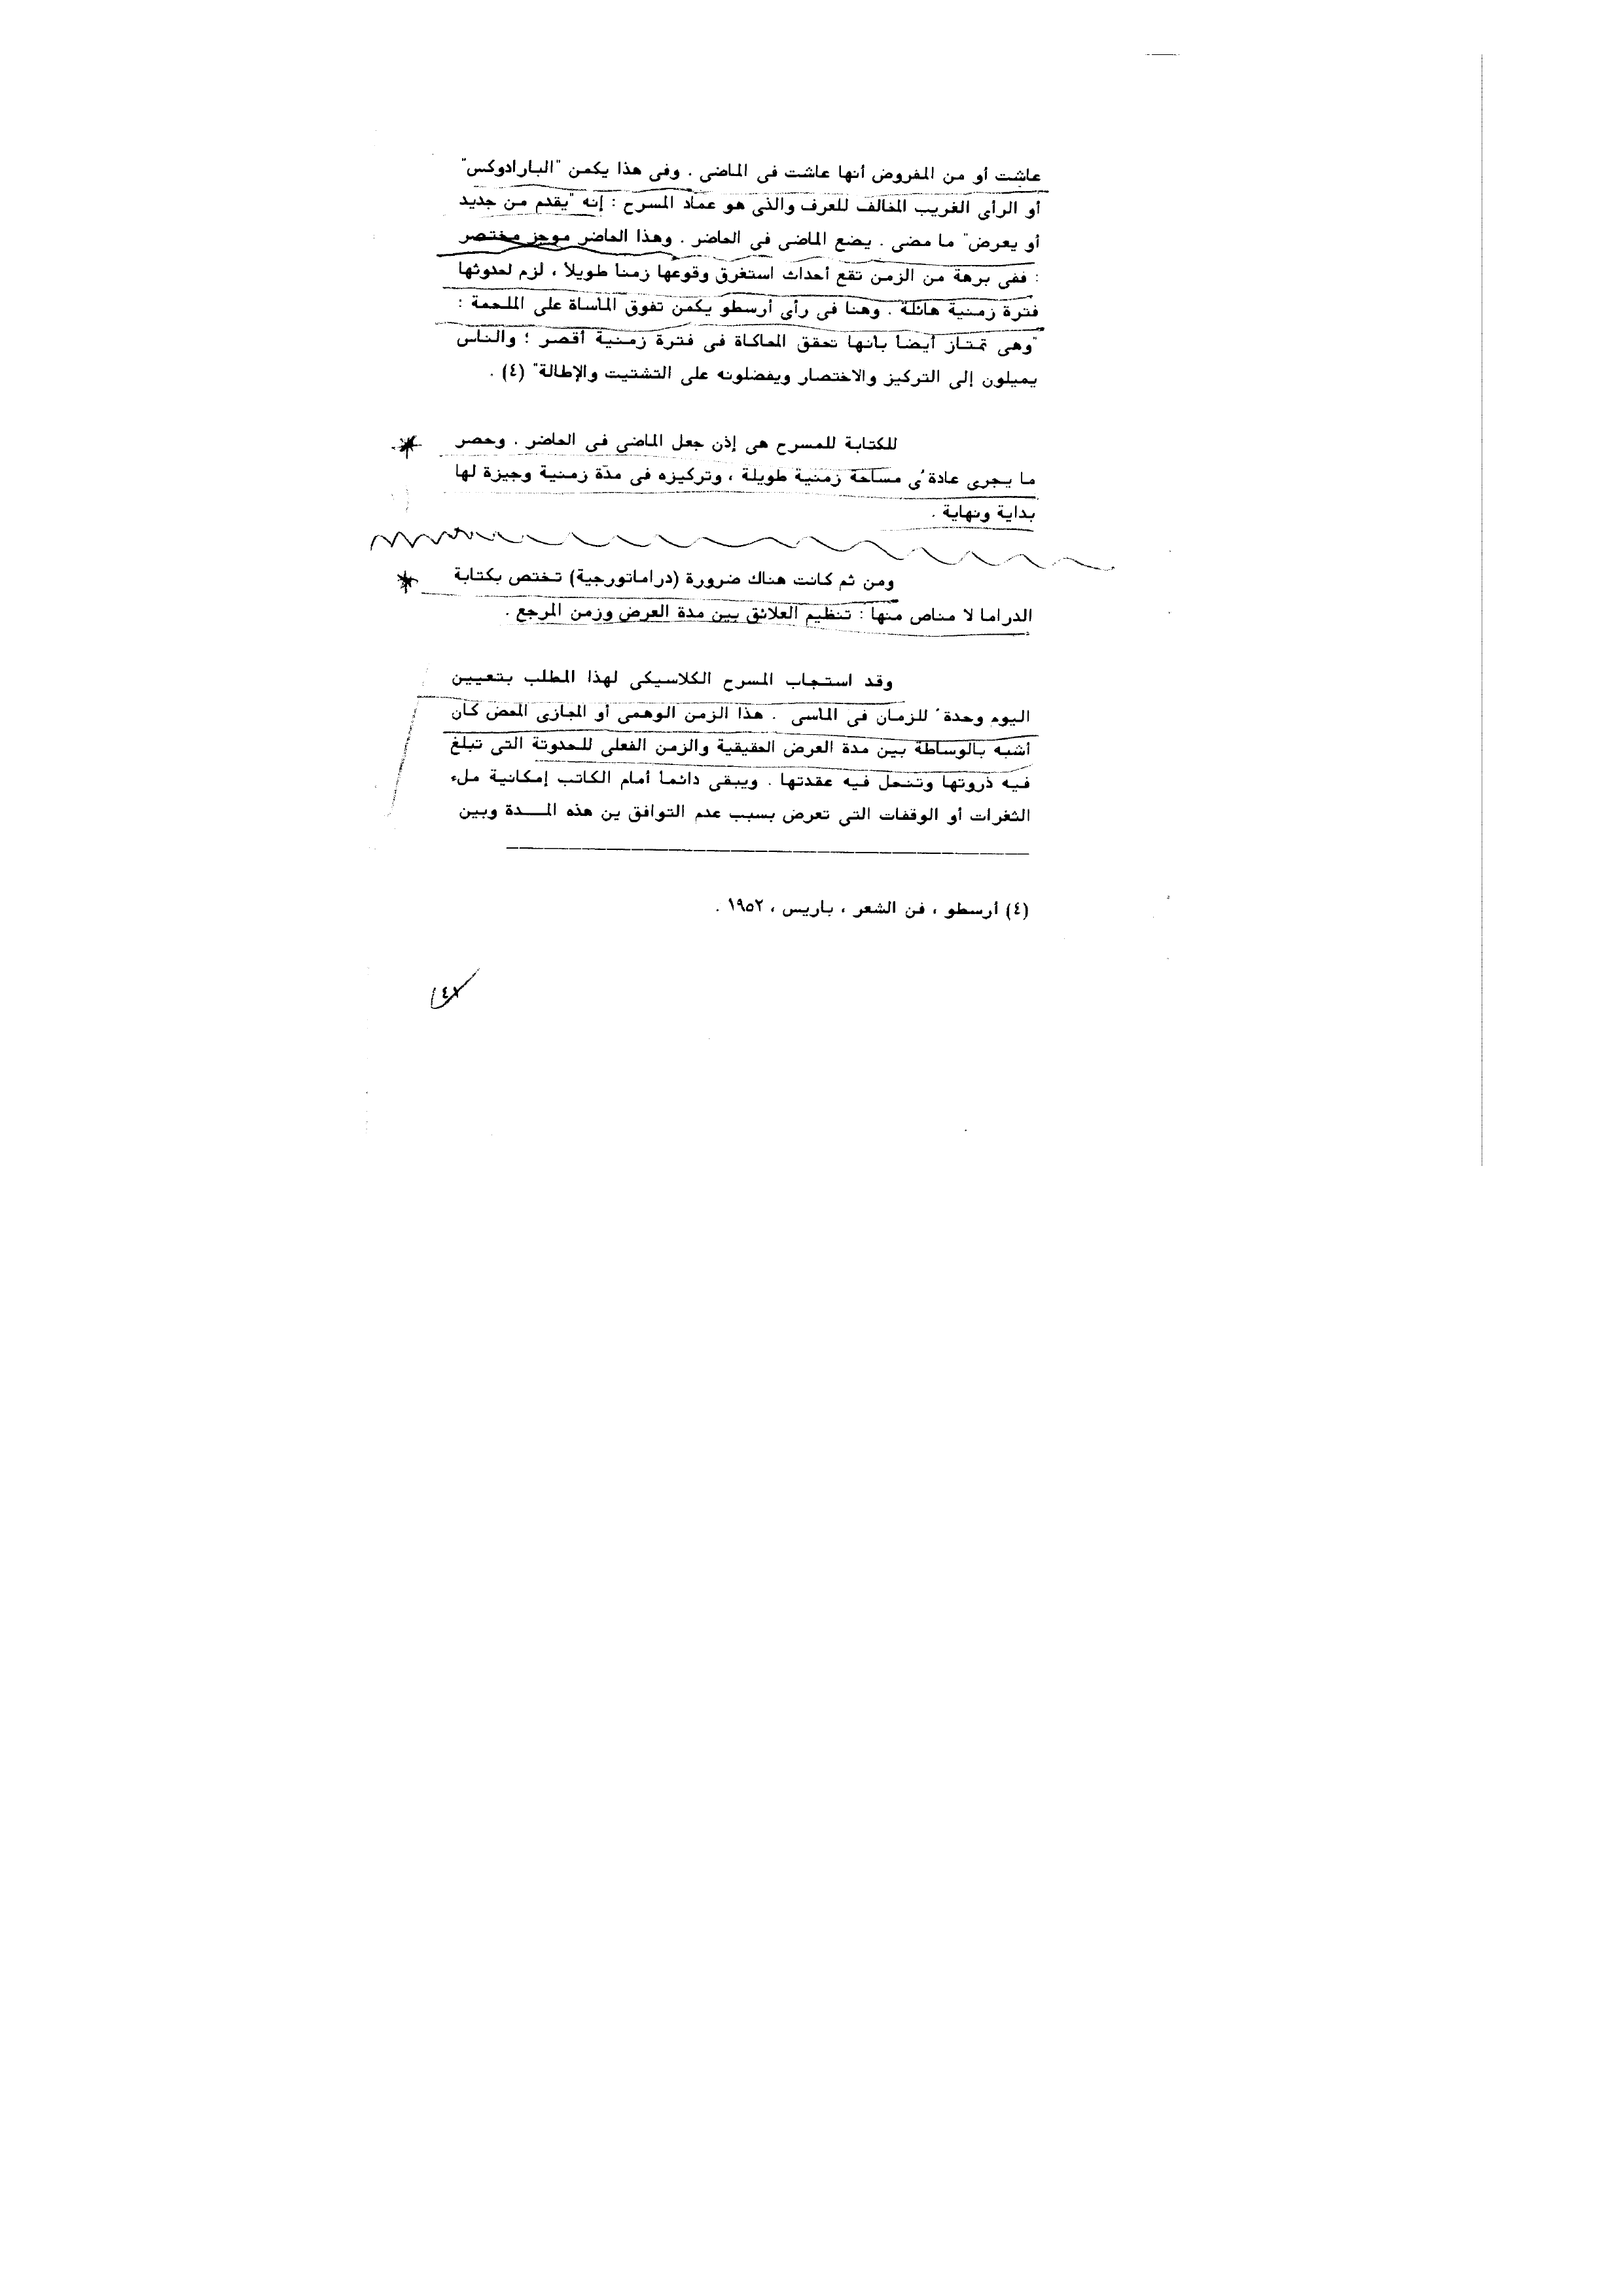 عاشت أو من المفروض أنها عاشت فى الماضى . وفى هذا يكمن "البارادوكس"
أو الرأى الغريب المخالف للعرف والذى هو عماد المسرح : إنه "يقدم من جديد
أو يعرض" ما مضى . يضع الماضى فى الحاضر . وهذا الحاضر موجز مختصر
: ففى برهة من الزمن تقع أحداث استغرق وقوعها زمنا طويلاً ، لزم لحدوثها
فترة زمنية هائلة . وهنا فى رأى أرسطو يكمن تفوق المأساة على الملحمة :
"وهى تمتاز أيضا بأنها تحقق المحاكاة فى فترة زمنية أقصر ؛ والناس
يميلون إلى التركيز والاختصار ويفضلونه على التشتيت والإطالة" (٤) .
للكتابة للمسرح هى إذن جعل الماضى فى الحاضر . وحصر
ما يجرى عادة ًى مساحة زمنية طويلة ، وتركيزه فى مدّة زمنية وجيزة لها
بداية ونهاية .
ومن ثم كانت هناك ضرورة (دراماتورجية) تختص بكتابة
الدراما لا مناص منها : تنظيم العلائق بين مدة العرض وزمن المرجع .
وقد استجاب المسرح الكلاسيكى لهذا المطلب بتعيين
اليوم وحدة ً للزمان فى المآسى . هذا الزمن الوهمى أو المجازى المحض كان
أشبه بالوساطة بين مدة العرض الحقيقية والزمن الفعلى للحدوتة التى تبلغ
فيه ذروتها وتنحل فيه عقدتها . ويبقى دائما أمام الكاتب إمكانية ملء
الثغرات أو الوقفات التى تعرض بسبب عدم التوافق ين هذه المــــدة وبين
(٤) أرسطو ، فن الشعر ، باريس ، ١٩٥٢ .